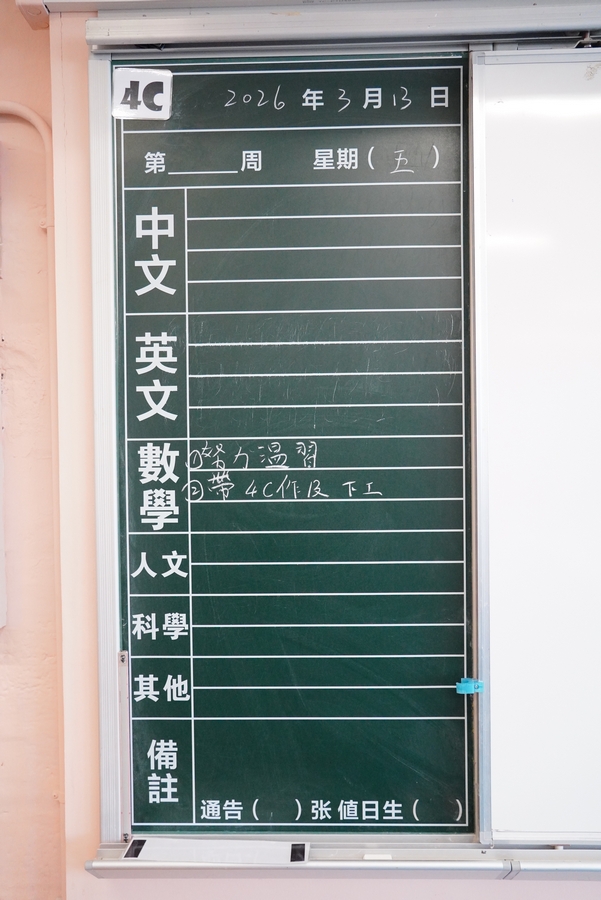 4C
2026 年 3 月 13 日
第 周 星期（五）
中文
英文
數學
①努力溫習
②帶 4C作及 下工
人文
科學
其他
備註
通告（ ）张 值日生（ ）